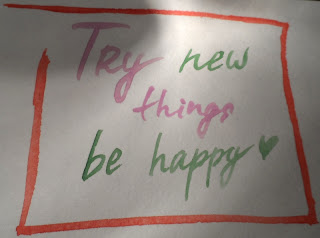 Try new
things
be happy♥